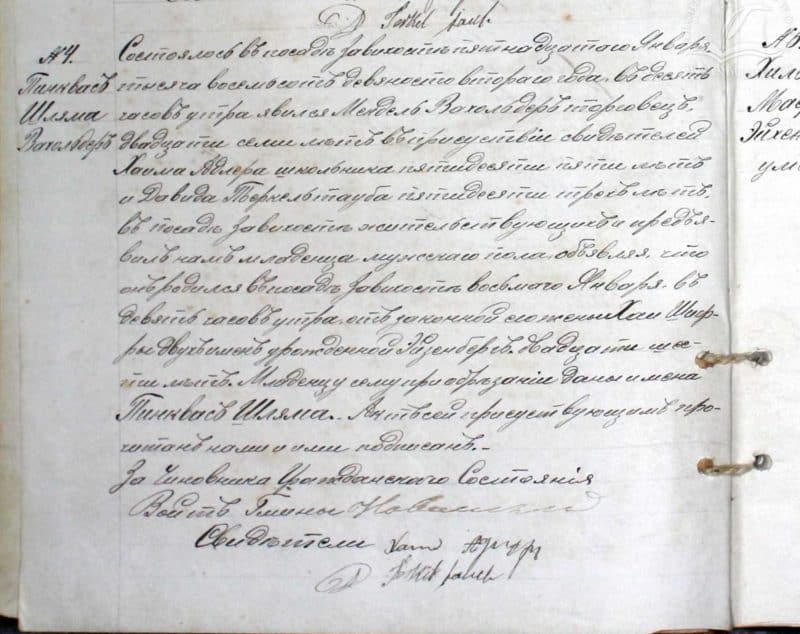 №4.
Пинквасъ
Шляма
Вахольдеръ
Состоялось въ посадѣ Завихостѣ пятнадцатаго Января,
тысяча восемьсотъ девяносто втораго года, въ десять
часовъ утра явился Мендель Вахольдеръ торговецъ,
двадцати семи лѣтъ въ присутствіи свидѣтелей
Хаима Адлера школьника пятидесяти пяти лѣтъ
и Давида Перкельтауба пятидесяти трехъ лѣтъ,
въ посадѣ Завихостѣ жительствующихъ и предъя-
вилъ намъ младенца мужскаго пола, объявляя, что
онъ родился въ посадѣ Завихостѣ восьмаго Января, въ
девять часовъ утра, отъ законной его жены Хаи Шиф-
ры двухъ именъ урожденной Эйзенбергъ, двадцати шес-
ти лѣтъ. Младенцу сему при обрѣзаніи даны имена
Пинквасъ Шляма. Актъ сей присутствующимъ про-
читанъ нами и ими подписанъ.-
За Чиновника Гражданскаго Состоянія
Войтъ Гмины
Свидѣтели
№5.
Хиль
Эйхен